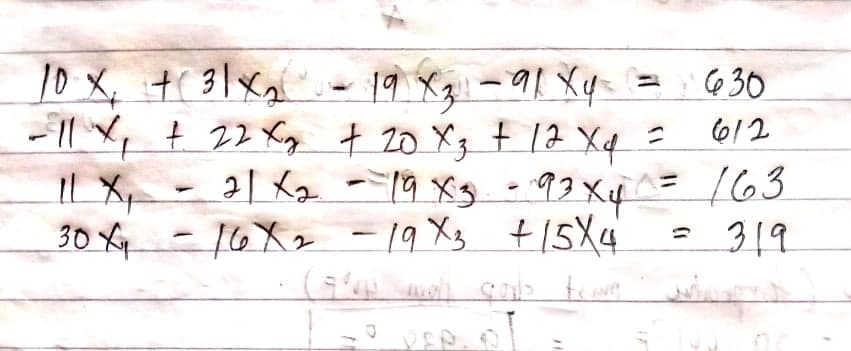 10 X₁ + 31 X₂ - 19 X₃ - 91 X₄ = 630
-11 X₁ + 22 X₂ + 20 X₃ + 12 X₄ = 612
11 X₁ - 21 X₂ - 19 X₃ - 93 X₄ = 163
30 X₁ - 16 X₂ - 19 X₃ + 15 X₄ = 319